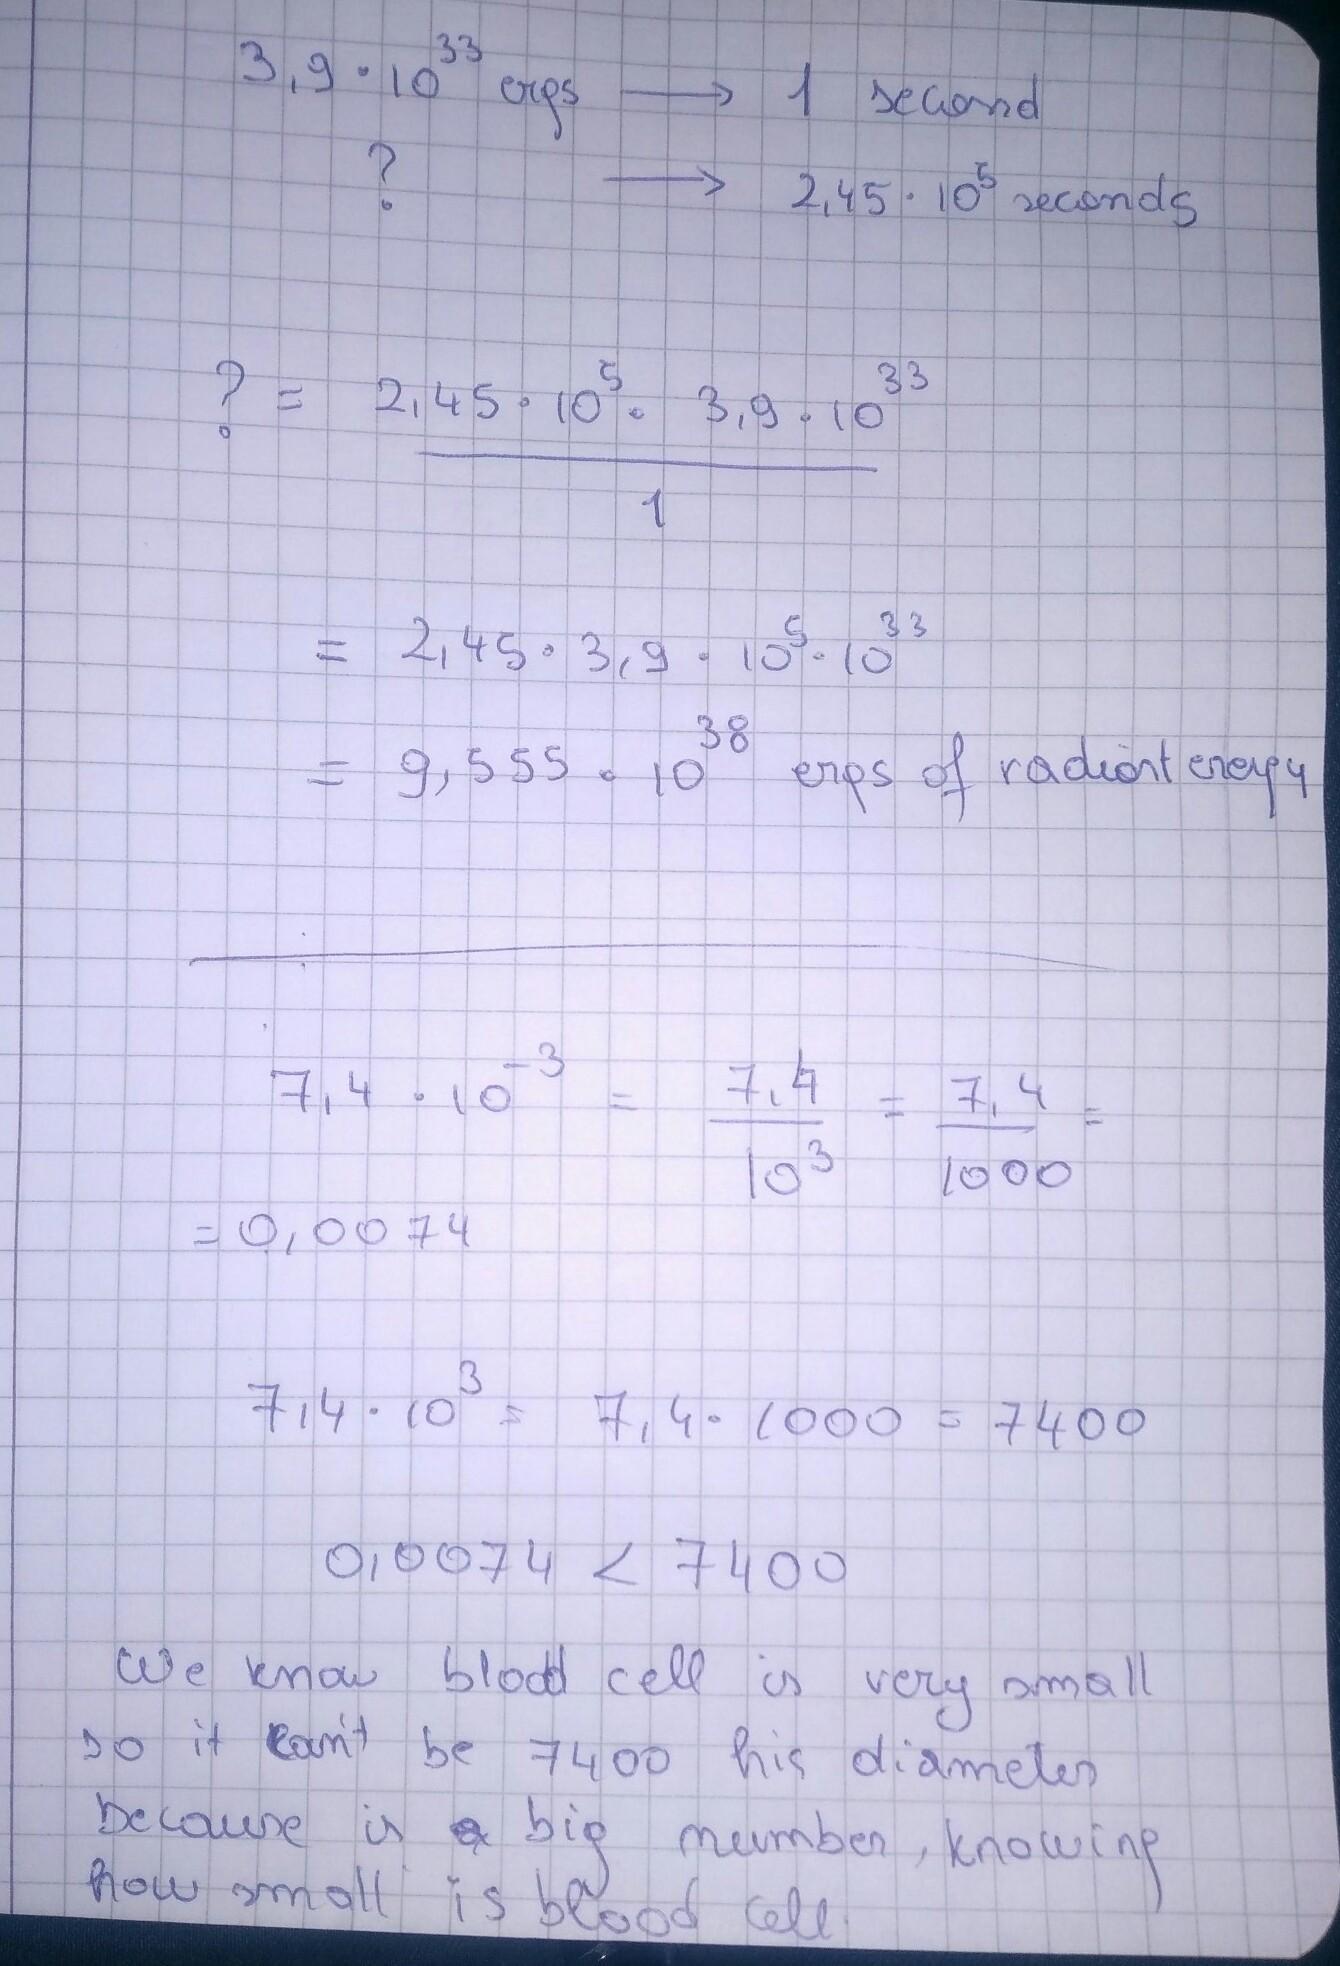 3,9 · 10^33 ergs → 1 second
? → 2,45 · 10^5 seconds
? = 2,45 · 10^5 · 3,9 · 10^33
1
= 2,45 · 3,9 · 10^5 · 10^33
= 9,555 · 10^38 ergs of radiant energy
7,4 · 10^-3 = 7,4/10^3 = 7,4/1000 =
= 0,0074
7,4 · 10^3 = 7,4 · 1000 = 7400
0,0074 < 7400
We know blood cell is very small
so it can't be 7400 his diameter
because is a big number, knowing
how small is blood cell.